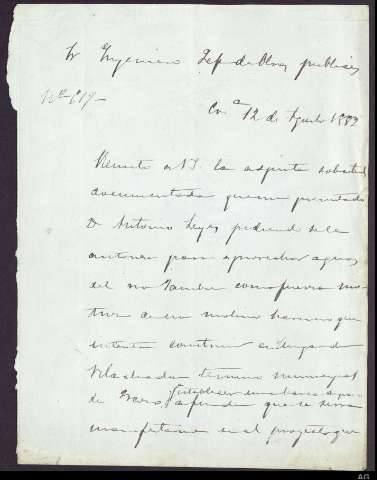 Sr Ingeniero Jefe de Obras publicas
Nº 619
Cña 12 de Agosto 1882
Remito a V.S. la adjunta solicitud
documentada que me presentado
D. Antonio Leyes pidiendo se le
autorice para aprovechar aguas
del rio Tambre como fuerza mo-
triz de un molino harinero que
intenta construir en lugar de
termino municipal
de establecer una barca a pa-
que se sirva
manifestarme si el proyecto que
AG